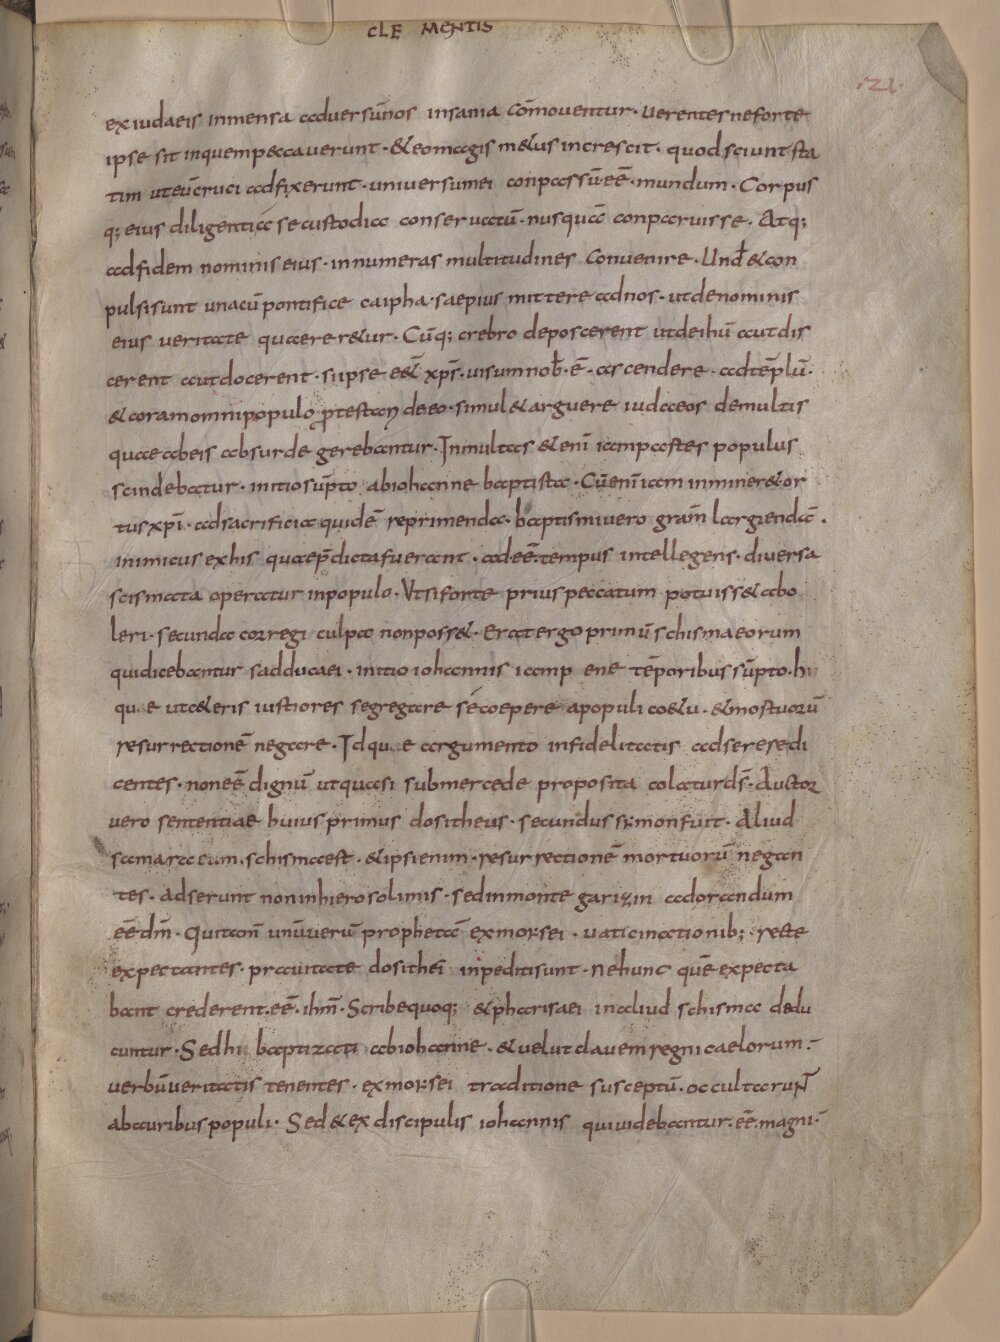 CLEMENTIS
.21.
ex iudaeis inmensa aduersūnos insania com̄ouentur· uerentes neforte
ipse sit inquempeccauerunt· & eomagis m&us increscit· quod sciunt sta
tim uteūcruci adfixerunt· uniuersumei conpassūeē· mundum· Corpus
q; eius diligentia secustodia conseruatū· nusquā conparuisse· Atq;
adfidem nominis eius· innumeras multitudines conuenire· Und& con
pulsi sunt unacū pontifice caipha· saepius mittere adnos· utdenominis
eius ueritate quaerer&ur· Cūq; crebro deposcerent utdeihū autdis
cerent autdocerent· siipse e&̄ xp̄s· uisumnob̄·ē· ascendere· adtēplū·
& coramomnipopulo p̱testari deeo· simul & arguere iudaeos demultis
quae abeis absurde gerebantur· Inmultas & enī iampartes populus
scindebatur· initiosūpto abiohanne baptista· Cūenīiam inminer& or
tus xp̄i· adsacrificia quidē reprimenda· baptismiuero gram̄ largiendā·
inimicus exhis quaep̄dictafuerant· adeē·tempus intellegens· diuersa
scismata operatur inpopulo· Utsiforte prius peccatum potuiss& abo
leri· secunda corregi culpa nonposs&· Erat ergo primū schisma eorum
quidicebantur sadducaei· initio iohannis iamp ene tēporibus sūpto· hi
quae utc&eris iustiores segregare sécoepere apopuli co&u· & mortuorū
resurrectionē negare· Idquae argumento infidelitatis adseresedi
centes· noneē dignū utquasi submercede proposita colaturds̄· Auctor
uero sententiae huius primus dositheus· secundus simonfuit· Aliud
samaraeum· schismaest· & ipsienim· resurrectionē mortuorū negan
tes· adserunt noninhierosolimis· sedinmonte garizin adorandum
eē dm̄· Quitam̄ unūuerū prophetā exmorsei· uaticinationib; recte
expectantes· prauitate dositheī inpeditisunt· nehunc quē expecta
bant crederent·eē· ihm̄· Scribequoq; & pharisaei inaliud schisma dedu
cuntur· Sedhi baptizati abiohanne· & uelutclauem regni caelorum·
uerbūueritatis tenentes· exmorsei traditione susceptū· occultarunt
abauribus populi· Sed & ex discipulis iohannis quiuidebantur·eē·magni·